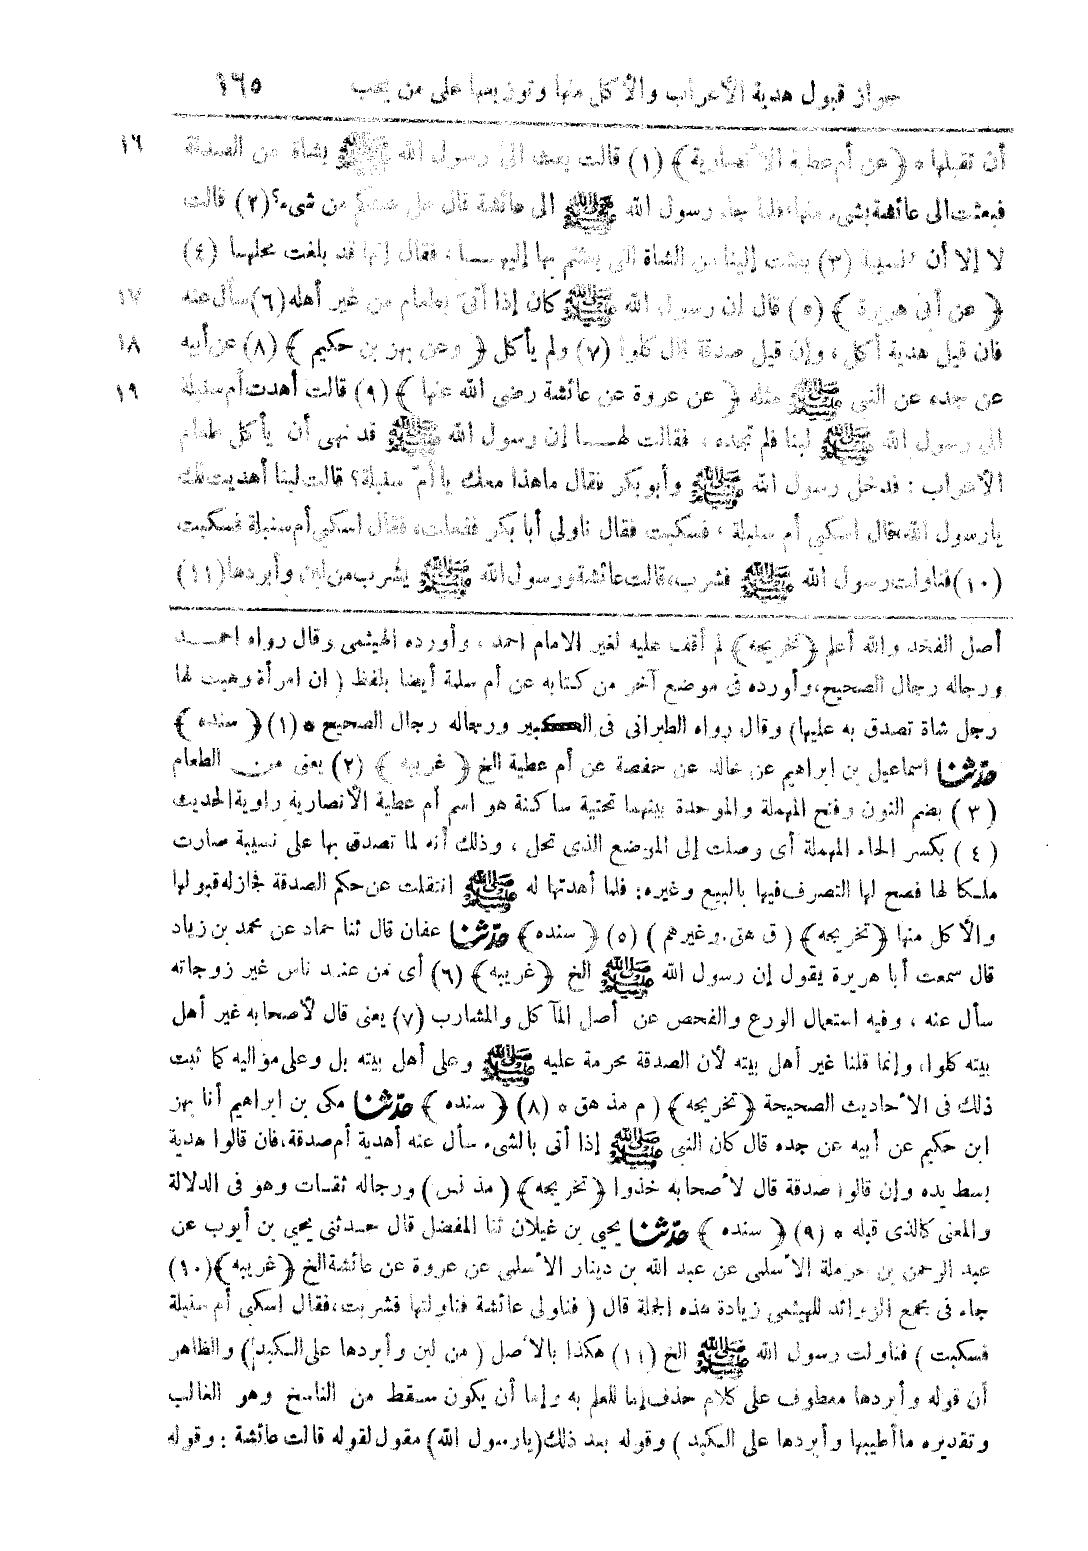 جواز قبول هدية الأعراب والأكل منها وتوزيعها على من يحب ١٦٥
أن تقبلها * ﴿ عن أم عطية الأنصارية ﴾ (١) قالت بعث الى رسول الله ﷺ بشاة من الصدقة ١٦
فبعثت الى عائشة بشىء منها فلما جاء رسول الله ﷺ الى عائشة قال هل عندكم من شىء؟ (٢) قالت
لا إلا أن نسيبة (٣) بعثت إلينا من الشاة التى بعثتم بها إليهـــا، فقال إنها قد بلغت محلها (٤)
﴿ عن أبى هريرة ﴾ (٥) قال ان رسول الله ﷺ كان إذا أتى بطعام من غير أهله (٦) سأل عنه ١٧
فان قيل هدية أكل، وإن قيل صدقة قال كلوا (٧) ولم يأكل ﴿ وعن بهز بن حكيم ﴾ (٨) عن أبيه ١٨
عن جده عن النبى ﷺ مثله ﴿ عن عروة عن عائشة رضى الله عنها ﴾ (٩) قالت أهدت أم سنبلة ١٩
الى رسول الله ﷺ لبنا فلم تجده، فقالت لهـــا إن رسول الله ﷺ قد نهى أن يأكل طعام
الأعراب: فدخل رسول الله ﷺ وأبو بكر فقال ماهذا معك يا أم سنبلة؟ قالت لبنا أهديت لك
يارسول الله، قال اسكبى أم سنبلة، فسكبت فقال ناولى أبا بكر ففعلت، فقال اسكبى أم سنبلة فسكبت
(١٠) فناولت رسول الله ﷺ فشرب، قالت عائشة ورسول الله ﷺ يشرب من لبن وأبردها (١١)
أصل الفخذ والله أعلم ﴿ تخريجه ﴾ لم أقف عليه لغير الامام احمد، وأورده الهيثمى وقال رواه احمـــد
ورجاله رجال الصحيح، وأورده فى موضع آخر من كتابه عن أم سلمة أيضا بلفظ ( ان امرأة وهبت لها
رجل شاة تصدق به عليها) وقال رواه الطبرانى فى الكبير ورجاله رجال الصحيح * (١) ﴿ سنده ﴾
حدّثنا اسماعيل بن ابراهيم عن خالد عن حفصة عن أم عطية الخ ﴿ غريبه ﴾ (٢) يعنى من الطعام
(٣) بضم النون وفتح المهملة والموحدة بينهما تحتية ساكنة هو اسم أم عطية الأنصارية راوية الحديث
(٤) بكسر الحاء المهملة أى وصلت إلى الموضع الذى تحل، وذلك أنه لما تصدق بها على نسيبة صارت
ملكا لها فصح لها التصرف فيها بالبيع وغيره: فلما أهدتها له ﷺ انتقلت عن حكم الصدقة فجازله قبولها
والأكل منها ﴿ تخريجه ﴾ ( ق هق. وغيرهم ) (٥) ﴿ سنده ﴾ حدّثنا عفان قال ثنا حماد عن محمد بن زياد
قال سمعت أبا هريرة يقول إن رسول الله ﷺ الخ ﴿ غريبه ﴾ (٦) أى من عنبد ناس غير زوجاته
سأل عنه، وفيه استعمال الورع والفحص عن أصل المآكل والمشارب (٧) يعنى قال لأصحابه غير أهل
بيته كلوا، وإنما قلنا غير أهل بيته لأن الصدقة محرمة عليه ﷺ وعلى أهل بيته بل وعلى مواليه كما ثبت
ذلك فى الأحاديث الصحيحة ﴿ تخريجه ﴾ ( م مذ هق * (٨) ﴿ سنده ﴾ حدّثنا مكى بن ابراهيم أنا بهز
ابن حكيم عن أبيه عن جده قال كان النبى ﷺ إذا أتى بالشىء سأل عنه أهدية أم صدقة، فان قالوا هدية
بسط يده وإن قالوا صدقة قال لأصحابه خذوا ﴿ تخريجه ﴾ ( مذ نس ) ورجاله ثقات وهو فى الدلالة
والمعنى كالذى قبله * (٩) ﴿ سنده ﴾ حدّثنا يحيى بن غيلان ثنا المفضل قال حدثنى يحيى بن أيوب عن
عبد الرحمن بن حرملة الأسلمى عن عبد الله بن دينار الأسلمى عن عروة عن عائشة الخ ﴿ غريبه ﴾ (١٠)
جاء فى مجمع الزوائد للهيثمى زيادة هذه الجملة قال ( فناولى عائشة فناولتها فشربت، فقال اسكبى أم سنبلة
فسكبت ) فناولت رسول الله ﷺ الخ (١١) هكذا بالأصل ( من لبن وأبردها على الكبد) والظاهر
أن قوله وأبردها معطوف على كلام حذف إما للعلم به وإما أن يكون سقط من الناسخ وهو الغالب
وتقديره ما أطيبها وأبردها على الكبد ) وقوله بعد ذلك (يارسول الله) مقول لقوله قالت عائشة: وقوله